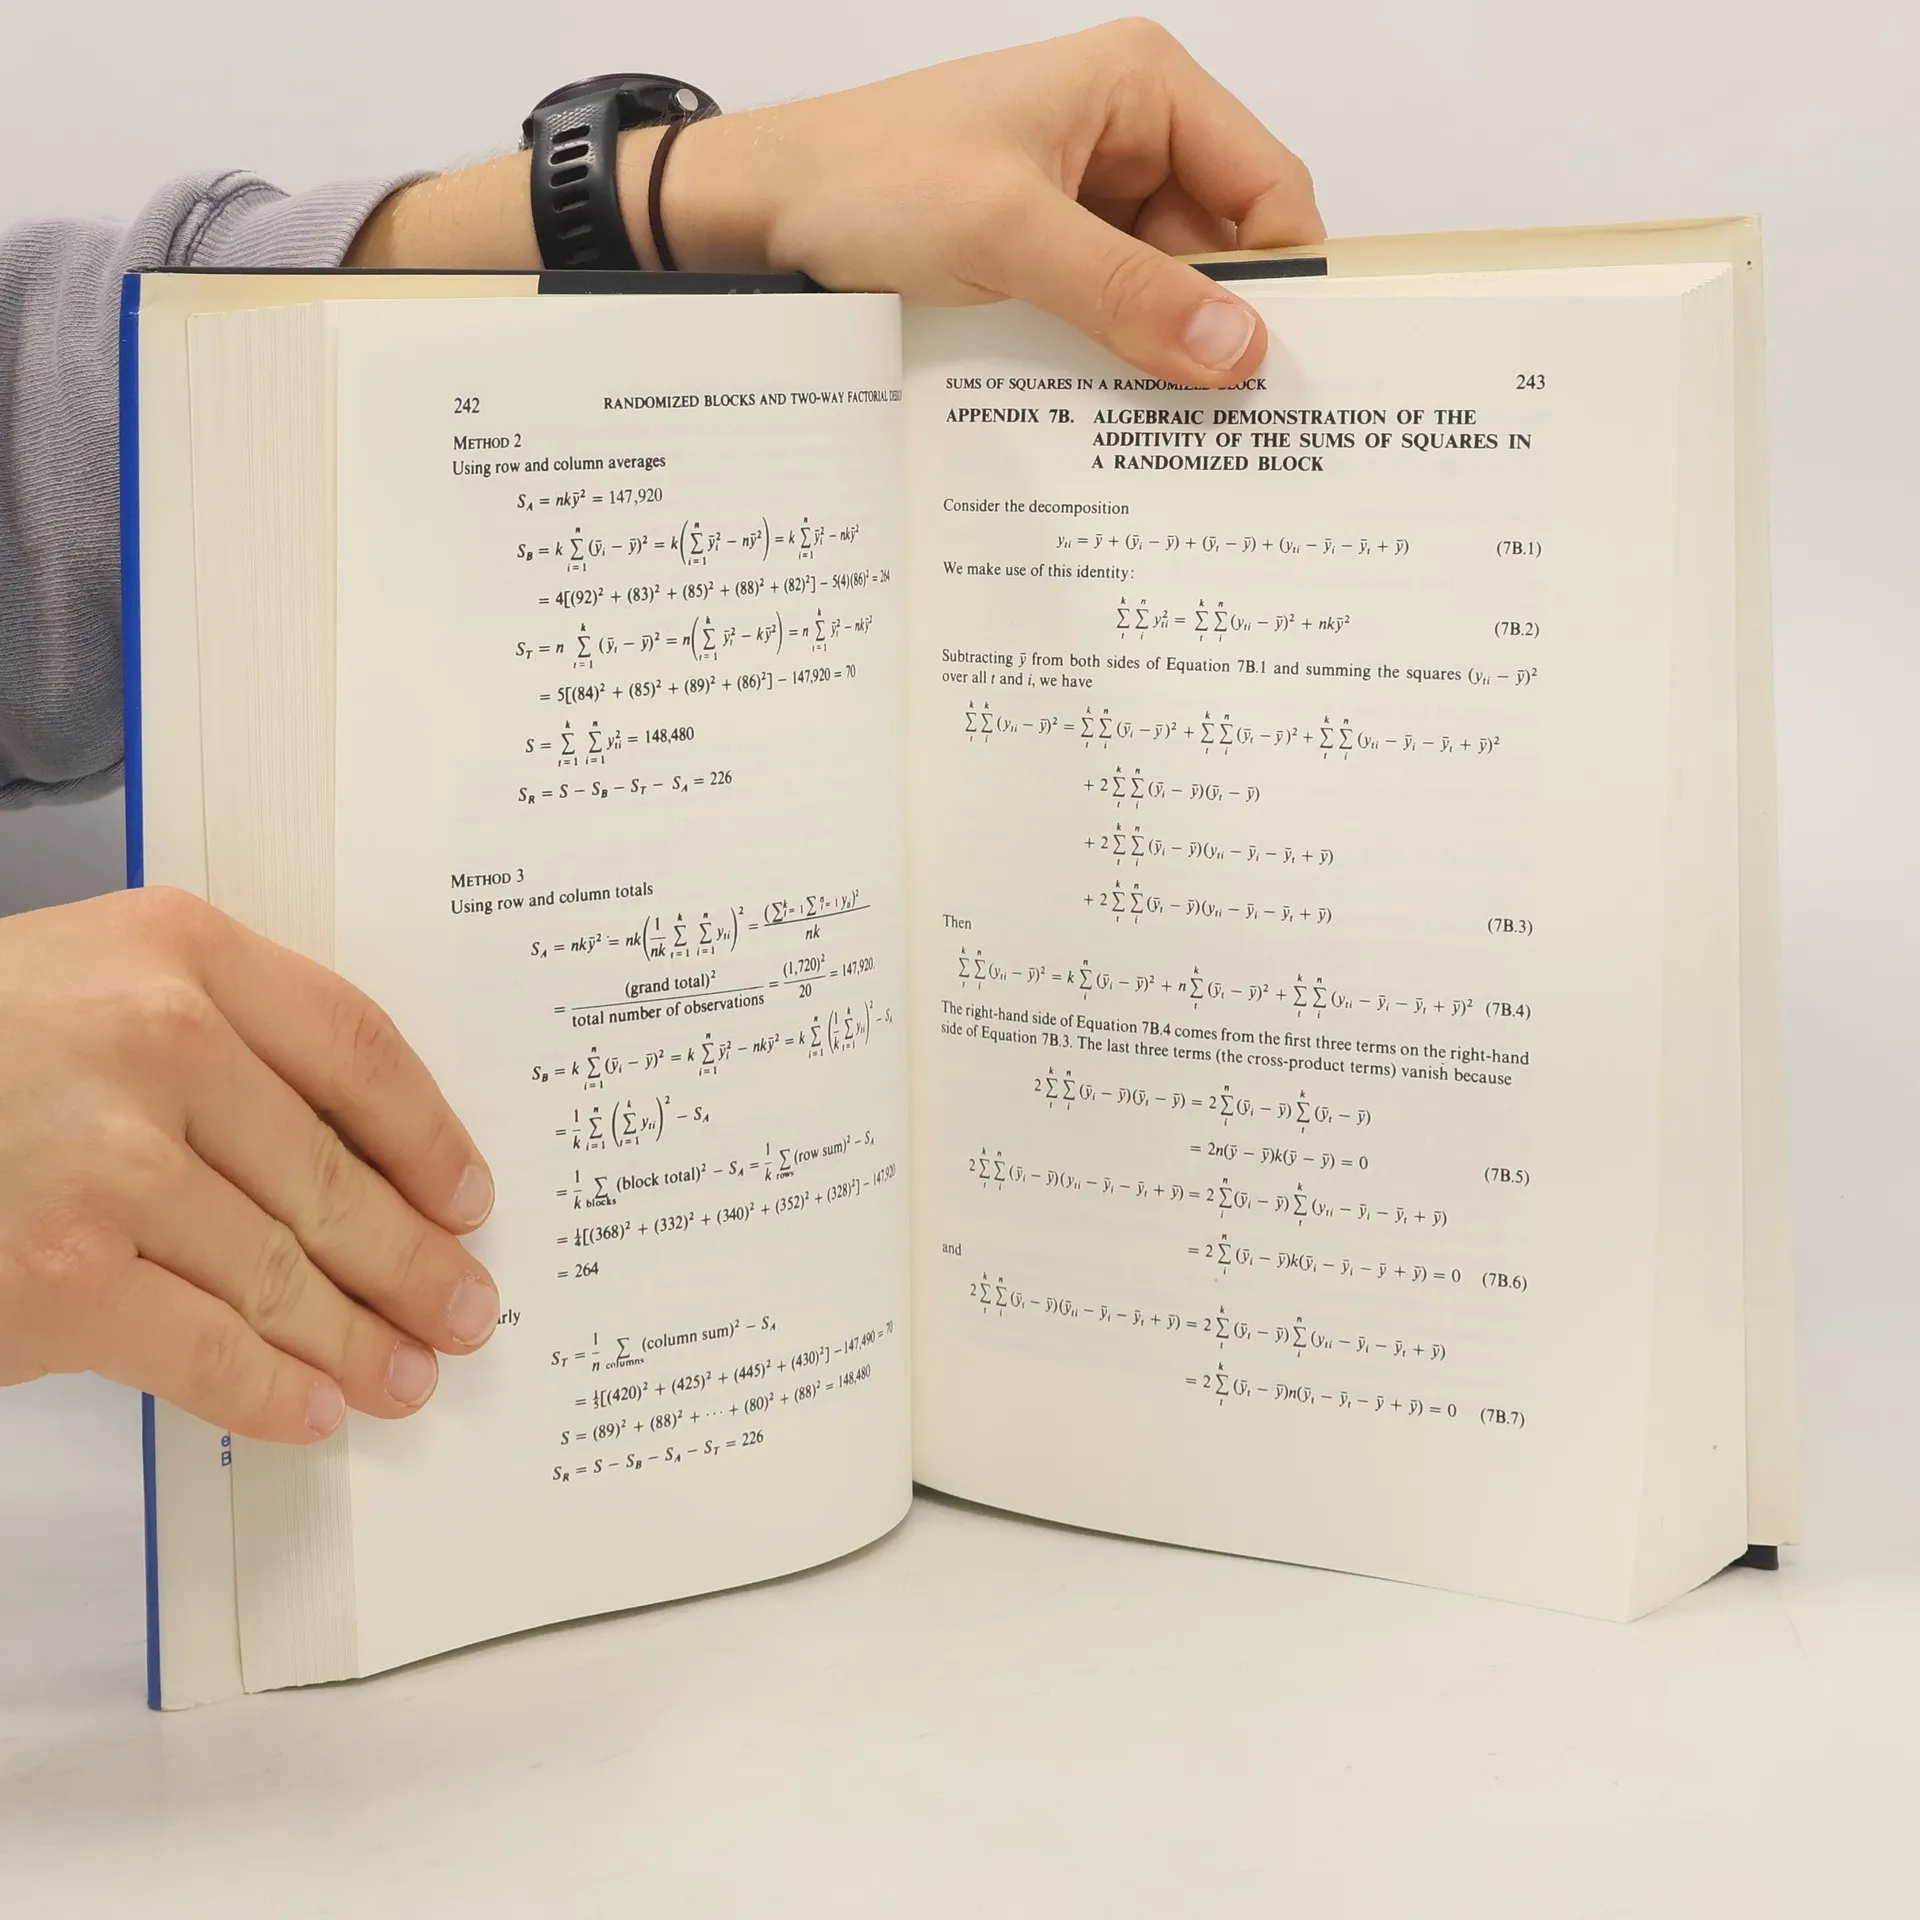 242 RANDOMIZED BLOCKS AND TWO-WAY FACTORIAL
METHOD 2
Using row and column averages
S_A = nkȳ² = 147,920
S_B = k ∑_{i=1}^{n} (ȳ_i − ȳ)² = k(∑_{i=1}^{n} ȳ_i² − nȳ²) = k ∑_{i=1}^{n} ȳ_i² − nkȳ²
= 4[(92)² + (83)² + (85)² + (88)² + (82)²] − 5(4)(86)² = 264
S_T = n ∑_{t=1}^{k} (ȳ_t − ȳ)² = n(∑_{t=1}^{k} ȳ_t² − kȳ²) = n ∑_{t=1}^{k} ȳ_t² − nkȳ²
= 5[(84)² + (85)² + (89)² + (86)²] − 147,920 = 70
S = ∑_{t=1}^{k} ∑_{i=1}^{n} y_{ti}² = 148,480
S_R = S − S_B − S_T − S_A = 226
METHOD 3
Using row and column totals
S_A = nkȳ² = nk(1/nk ∑_{t=1}^{k} ∑_{i=1}^{n} y_{ti})² = (∑_{t=1}^{k} ∑_{i=1}^{n} y_{ti})² / nk
= (grand total)² / total number of observations = (1,720)² / 20 = 147,920.
S_B = k ∑_{i=1}^{n} (ȳ_i − ȳ)² = k ∑_{i=1}^{n} ȳ_i² − nkȳ² = k ∑_{i=1}^{n} (1/k ∑_{t=1}^{k} y_{ti})² − S_A
= 1/k ∑_{i=1}^{n} (∑_{t=1}^{k} y_{ti})² − S_A
= 1/k ∑_{blocks} (block total)² − S_A = 1/k ∑_{rows} (row sum)² − S_A
= ¼[(368)² + (332)² + (340)² + (352)² + (328)²] − 147,920
= 264
S_T = 1/n ∑_{columns} (column sum)² − S_A
= ⅕[(420)² + (425)² + (445)² + (430)²] − 147,490 = 70
S = (89)² + (88)² + ··· + (80)² + (88)² = 148,480
S_R = S − S_B − S_A − S_T = 226
SUMS OF SQUARES IN A RANDOMIZED BLOCK 243
APPENDIX 7B. ALGEBRAIC DEMONSTRATION OF THE
ADDITIVITY OF THE SUMS OF SQUARES IN
A RANDOMIZED BLOCK
Consider the decomposition
y_{ti} = ȳ + (ȳ_i − ȳ) + (ȳ_t − ȳ) + (y_{ti} − ȳ_i − ȳ_t + ȳ) (7B.1)
We make use of this identity:
∑_{t}^{k} ∑_{i}^{n} y_{ti}² = ∑_{t}^{k} ∑_{i}^{n} (y_{ti} − ȳ)² + nkȳ² (7B.2)
Subtracting ȳ from both sides of Equation 7B.1 and summing the squares (y_{ti} − ȳ)²
over all t and i, we have
∑_{t}^{k} ∑_{i}^{k} (y_{ti} − ȳ)² = ∑_{t}^{k} ∑_{i}^{n} (ȳ_i − ȳ)² + ∑_{t}^{k} ∑_{i}^{n} (ȳ_t − ȳ)² + ∑_{t}^{k} ∑_{i}^{n} (y_{ti} − ȳ_i − ȳ_t + ȳ)²
+ 2 ∑_{t}^{k} ∑_{i}^{n} (ȳ_i − ȳ)(ȳ_t − ȳ)
+ 2 ∑_{t}^{k} ∑_{i}^{n} (ȳ_i − ȳ)(y_{ti} − ȳ_i − ȳ_t + ȳ)
+ 2 ∑_{t}^{k} ∑_{i}^{n} (ȳ_t − ȳ)(y_{ti} − ȳ_i − ȳ_t + ȳ) (7B.3)
Then
∑_{t}^{k} ∑_{i}^{n} (y_{ti} − ȳ)² = k ∑_{i}^{n} (ȳ_i − ȳ)² + n ∑_{t}^{k} (ȳ_t − ȳ)² + ∑_{t}^{k} ∑_{i}^{n} (y_{ti} − ȳ_i − ȳ_t + ȳ)² (7B.4)
The right-hand side of Equation 7B.4 comes from the first three terms on the right-hand
side of Equation 7B.3. The last three terms (the cross-product terms) vanish because
2 ∑_{t}^{k} ∑_{i}^{n} (ȳ_i − ȳ)(ȳ_t − ȳ) = 2 ∑_{i}^{n} (ȳ_i − ȳ) ∑_{t}^{k} (ȳ_t − ȳ)
= 2n(ȳ − ȳ)k(ȳ − ȳ) = 0 (7B.5)
2 ∑_{t}^{k} ∑_{i}^{n} (ȳ_i − ȳ)(y_{ti} − ȳ_i − ȳ_t + ȳ) = 2 ∑_{i}^{n} (ȳ_i − ȳ) ∑_{t}^{k} (y_{ti} − ȳ_i − ȳ_t + ȳ)
= 2 ∑_{i}^{n} (ȳ_i − ȳ)k(ȳ_i − ȳ_i − ȳ + ȳ) = 0 (7B.6)
and
2 ∑_{t}^{k} ∑_{i}^{n} (ȳ_t − ȳ)(ȳ_{ti} − ȳ_i − ȳ_t + ȳ) = 2 ∑_{t}^{k} (ȳ_t − ȳ) ∑_{i}^{n} (y_{ti} − ȳ_i − ȳ_t + ȳ)
= 2 ∑_{t}^{k} (ȳ_t − ȳ)n(ȳ_t − ȳ_t − ȳ + ȳ) = 0 (7B.7)